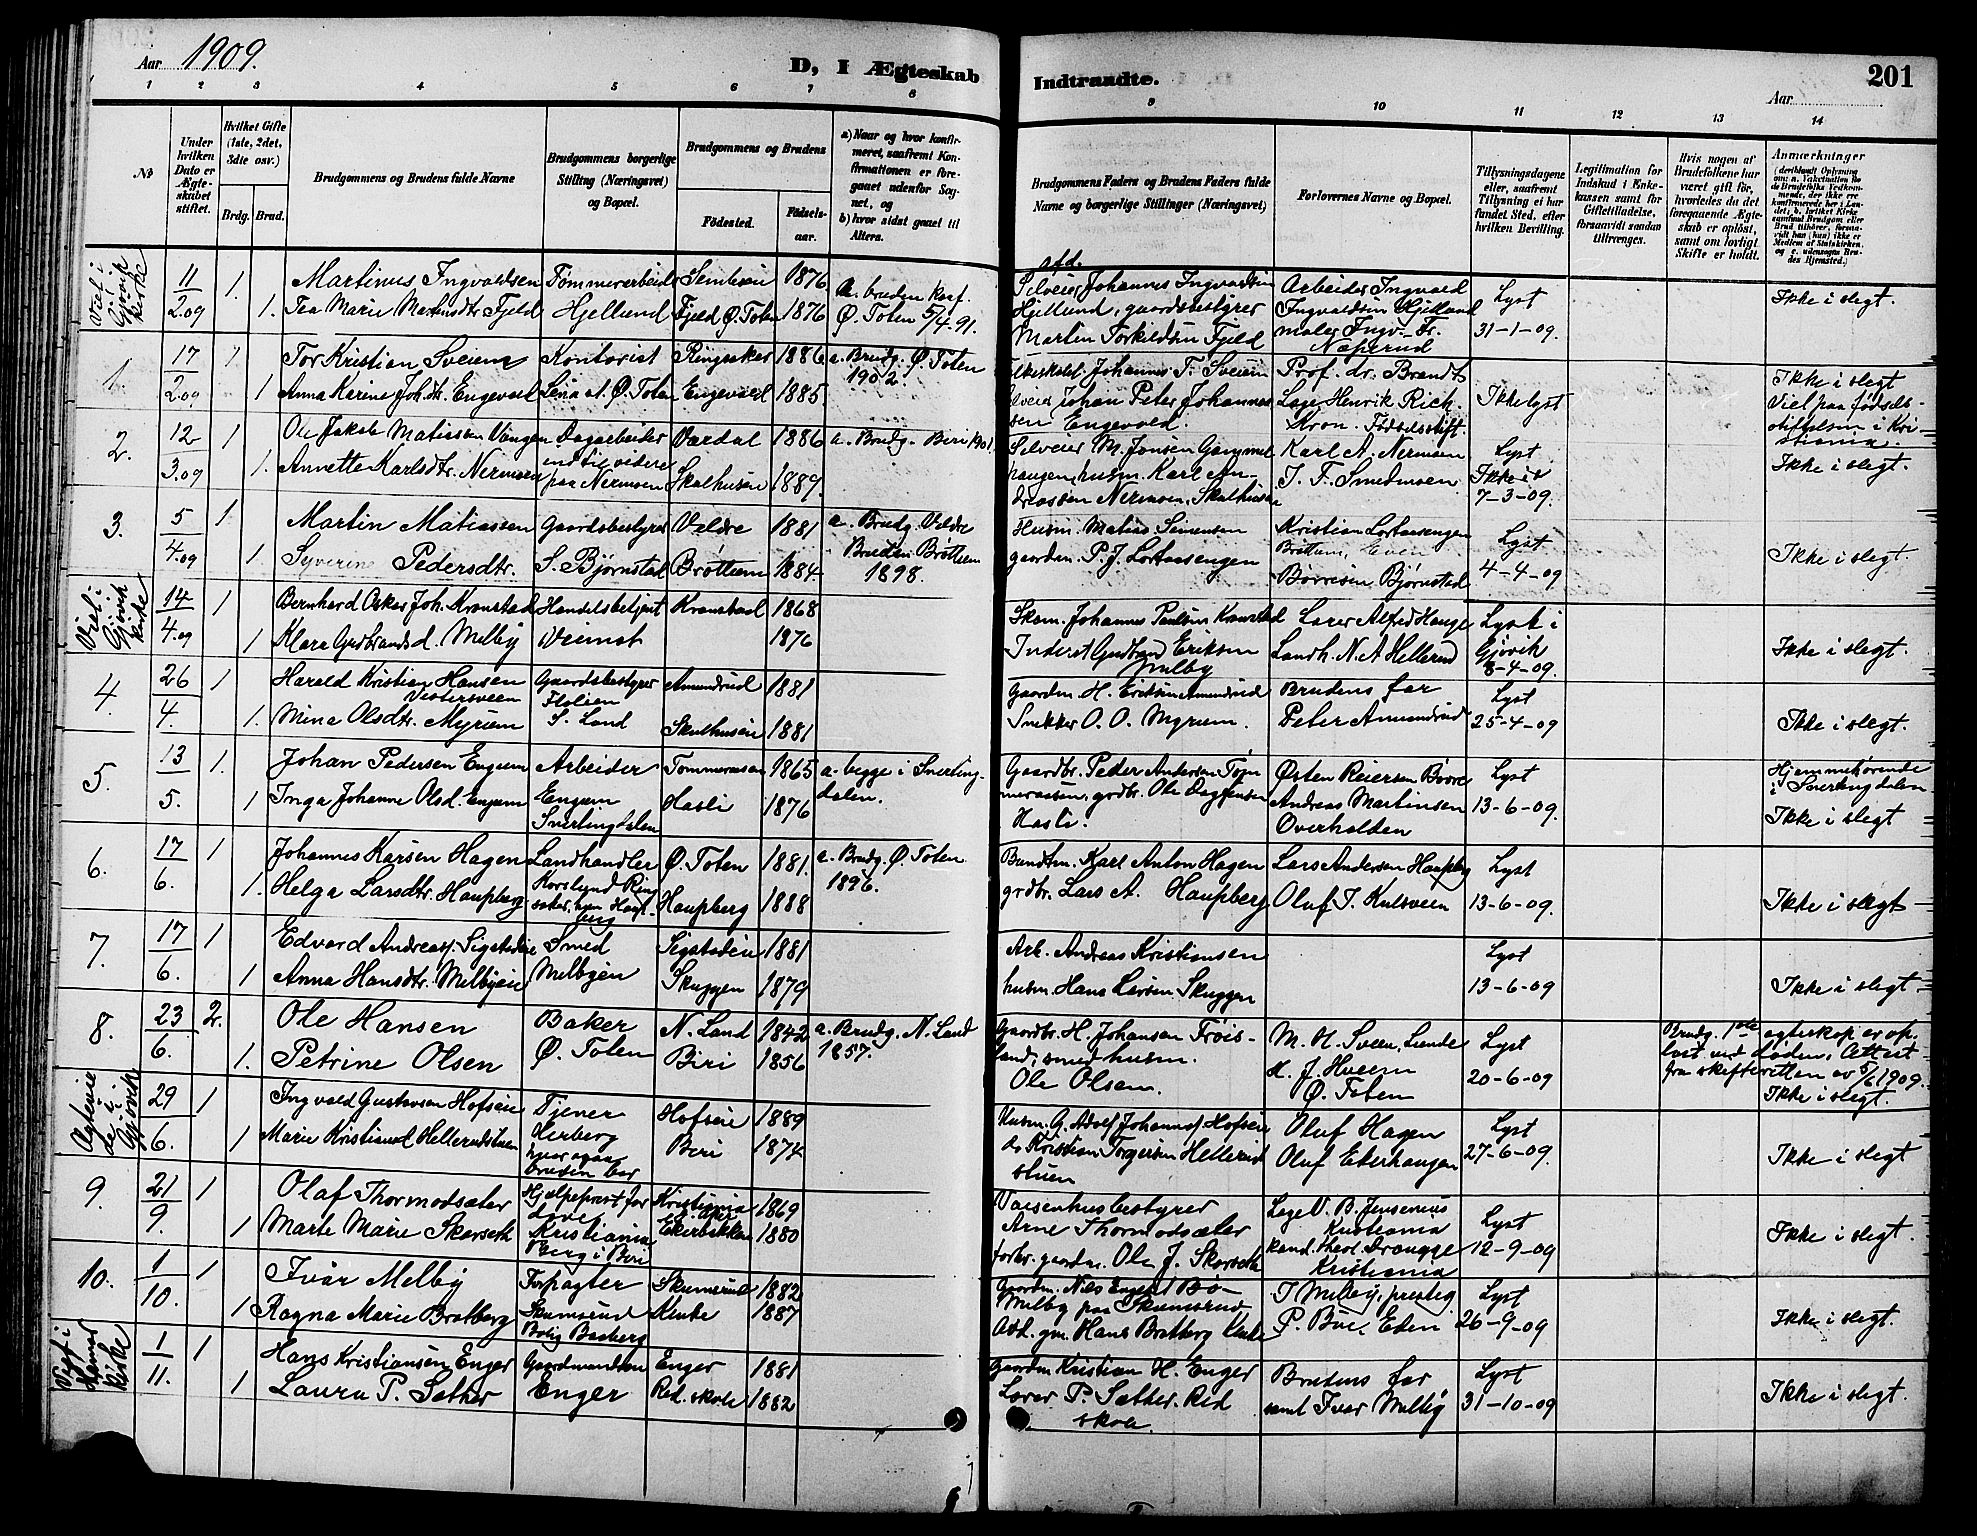 Aar 1909.
D, I Ægteskab
Indtraadte.
201
Aar
1 2 3 4 5 6 7 8 9 10 11 12 13 14
No
Under hvilken Dato er Ægteskabet stiftet.
Hvilket Gifte (1ste, 2det, 3die osv.)
Brdg. Brud.
Brudgommens og Brudens fulde Navne
Brudgommens borgerlige Stilling (Næringsvei) og Bopæl.
Brudgommens og Brudens
Fødested.
Fødselsaar.
a) Naar og hvor konfirmeret, saafremt Konfirmationen er foregaaet udenfor Sognet, og
b) hvor sidst gaaet til Alters.
Brudgommens Faders og Brudens Faders fulde Navne og borgerlige Stillinger (Næringsvei)
Forlovernes Navne og Bopæl.
Tillysningsdagene eller, saafremt Tillysning ei har fundet Sted, efter hvilken Bevilling.
Legitimation for Indskud i Enkekassen samt for Giftetilladelse, forsaavidt saadan tiltrænges.
Hvis nogen af Brudefolkene har været gift før, hvorledes da det foregaaende Ægteskab er opløst, samt om lovligt Skifte er holdt.
Anmærkninger
Viet i Gjøvik kirke
11/2.09 1. Martinus Ingvaldsen Tømmerarbeider 1876
1. Tea Marie Martinsdtr Fjeld Hjellund Fjeld Ø. Toten 1876
a. bruden konf. Ø. Toten 5/4.91.
afd. Johannes Ingvaldsen Hjellund, gaardsbestyrer
Martin Torkildsen Fjeld
Arbeider Ingvald Ingvaldsen Hjellund
maler Ingv. Fr. Næperud
Lyst 31-1-09.
Ikke i slegt.
1. 17/2.09 1 Tor Kristian Sveum Kontorist Ringsaker 1886
1 Anna Karine Joh.dtr. Engevold Lena st. Ø. Toten Engevold 1885
a. Brudg. Ø. Toten 1902.
Johannes T. Sveum
Johan Peter Johannessen Engevold.
Prof. dr. Brandt
Læge Henrik Rich
Kron. Fødselsstift.
Ikke lyst
Ikke i slegt
Viet paa fødselsstiftelsen i Kristiania.
2. 12/3.09 1 Ole Jakob Matiassen Vangen Dagarbeider Vardal 1886
1. Annette Karlsdtr. Nermoen indtil videre paa Nermoen Skalhusen 1889.
a. Brudg. Biri 1901
M. Jonsen Gammelhaugen, husm. Karl Andreassen Nermoen, Skalhusen
Karl A. Nermoen
J. F. Smedmoen
Lyst 7-3-09.
Ikke i slegt.
3. 5/4.09 1 Martin Matiassen Gaardsbestyrer Veldre 1881
1 Syverine Pedersdtr. S. Bjørnstad Brøttum 1884
a. Brudg. Veldre Bruden Brøttum 1898.
Husm. Matias Simensen
gaardm. P. J. Lortaasengen
Kristian Lortaasengen Brøttum, Even Børresen Bjørnstad
Lyst 4-4-09
Ikke i slegt
Viet i Gjøvik kirke
14/4.09 1 Bernhard Oskar Joh. Kronstad Handelsbetjent Kronstad 1868
1 Klara Gudbrandsd. Melby Veimot 1876
Johannes Paulsen Kronstad
Inderst Gudbrand Eriksen Melby
Lærer Alfred Hauge
Landh. N. A Hellerud
Lyst i Gjøvik 3-4-09.
Ikke i slegt.
4. 26/4. 1 Harald Kristian Hansen Vestersveen Gaardsbestyrer Amundrud 1881
1. Mina Olsdtr. Myrum S. Land Skalhusen 1881
Gaardm. H. Eriksen Amundrud
Snekker O. O. Myrum.
Brudens far
Peter Amundrud
Lyst 25-4-09
Ikke i slegt.
5. 13/5. 1. Johan Pedersen Engum Arbeider Tommeraasen 1865
1 Inga Johanne Olsd. Engum Engum Snertingdalen Hasli 1876
a. begge i Snertingdalen.
Gaardbr. Peder Andersen Tommeraasen, grdbr. Ole Dagfinsen Hasli.
Østen Reiersen Bøvre
Andreas Martinsen Overhalden
Lyst 13-6-09.
Hjemmehørende i Snertingdalen
Ikke i slegt
6. 17/6. 1 Johannes Karsen Hagen Landhandler Ø. Toten 1881.
1. Helga Larsdtr. Haugsberg Korslund Ringsaker Haugsberg 1888
a. Brudg. Ø. Toten 1896.
Karl Anton Hagen
grdbr. Lars A. Haugsberg
Lars Andersen Haugsberg
Oluf J. Kulsveen
Lyst 13-6-09.
Ikke i slegt
7. 17/6. 1 Edvard Andreass. Sigstadeie Smed Sigstadeie 1881
1 Anna Hansdtr. Melbyeie Melbyen Skuggen 1879
Arb. Andreas Kristiansen
husm. Hans Larsen Skuggen
Lyst 13-6-09
Ikke i slegt
8. 23/6. 2. Ole Hansen Baker N. Land 1842
1. Petrine Olsen Ø. Toten Biri 1856
a. Brudg. N. Land 1857.
Gaardbr. H. Johansen Frøisland, smed husm. Ole Olsen.
M. H. Sveen, Lunde
H. J. Hveem Ø. Toten
Lyst 20-6-09
Brudg. 1ste egteskap er opløst ved døden. Attest fra skifteretten av 5/6 1909.
Ikke i slegt.
Egteviede i Gjøvik
29/6. 1 Ingvald Gustavsen Hofseie Tjener Hofseie 1889
1 Marie Kristiansd Hellerudstuen Herberg hvor ogsaa bruden bor Biri 1874
Husm. G. Adolf Johannes. Hofseie
do Kristian Torgersen Hellerudstuen
Oluf Hagen
Oluf Ederhaugen
Lyst 27-6-09.
Ikke i slegt
9. 21/9. 1 Olaf Thormodsæter Hjelpeprest for døve Kristiania 1869
1 Marte Marie Skarseth Kristiania Berg i Biri Ekerbakken 1880
Vaisenhusbestyrer Arne Thormodsæter
forhv. gaardm. Ole J. Skarseth
Læge V. B. Jensenius Kristiania
kand. theol. Drougge Kristiania
Lyst 12-9-09
Ikke i slegt.
10. 1/10. 1 Ivar Melby Forpagter Skumsrud 1882
1 Ragna Marie Bratberg Skumsrud Bolig Basberg Kluke 1887
Gaardm. Nils Engebret Bø-Melby paa Skumsrud
Hans Bratberg Kluke
J Melby, presteg
P. Bue, Eden
Lyst 26-9-09
Ikke i slegt.
Viet i Hamar kirke
1/11. 1 Hans Kristiansen Enger Gaardmandssøn Enger 1881
1 Laura P. Sæther Enger Red. skole 1882
Gaardm Kristian H. Enger
Lærer P. Sæther. Red skole.
Brudens far
samt Ivar Melby
Lyst 31-10-09
Ikke i slegt.